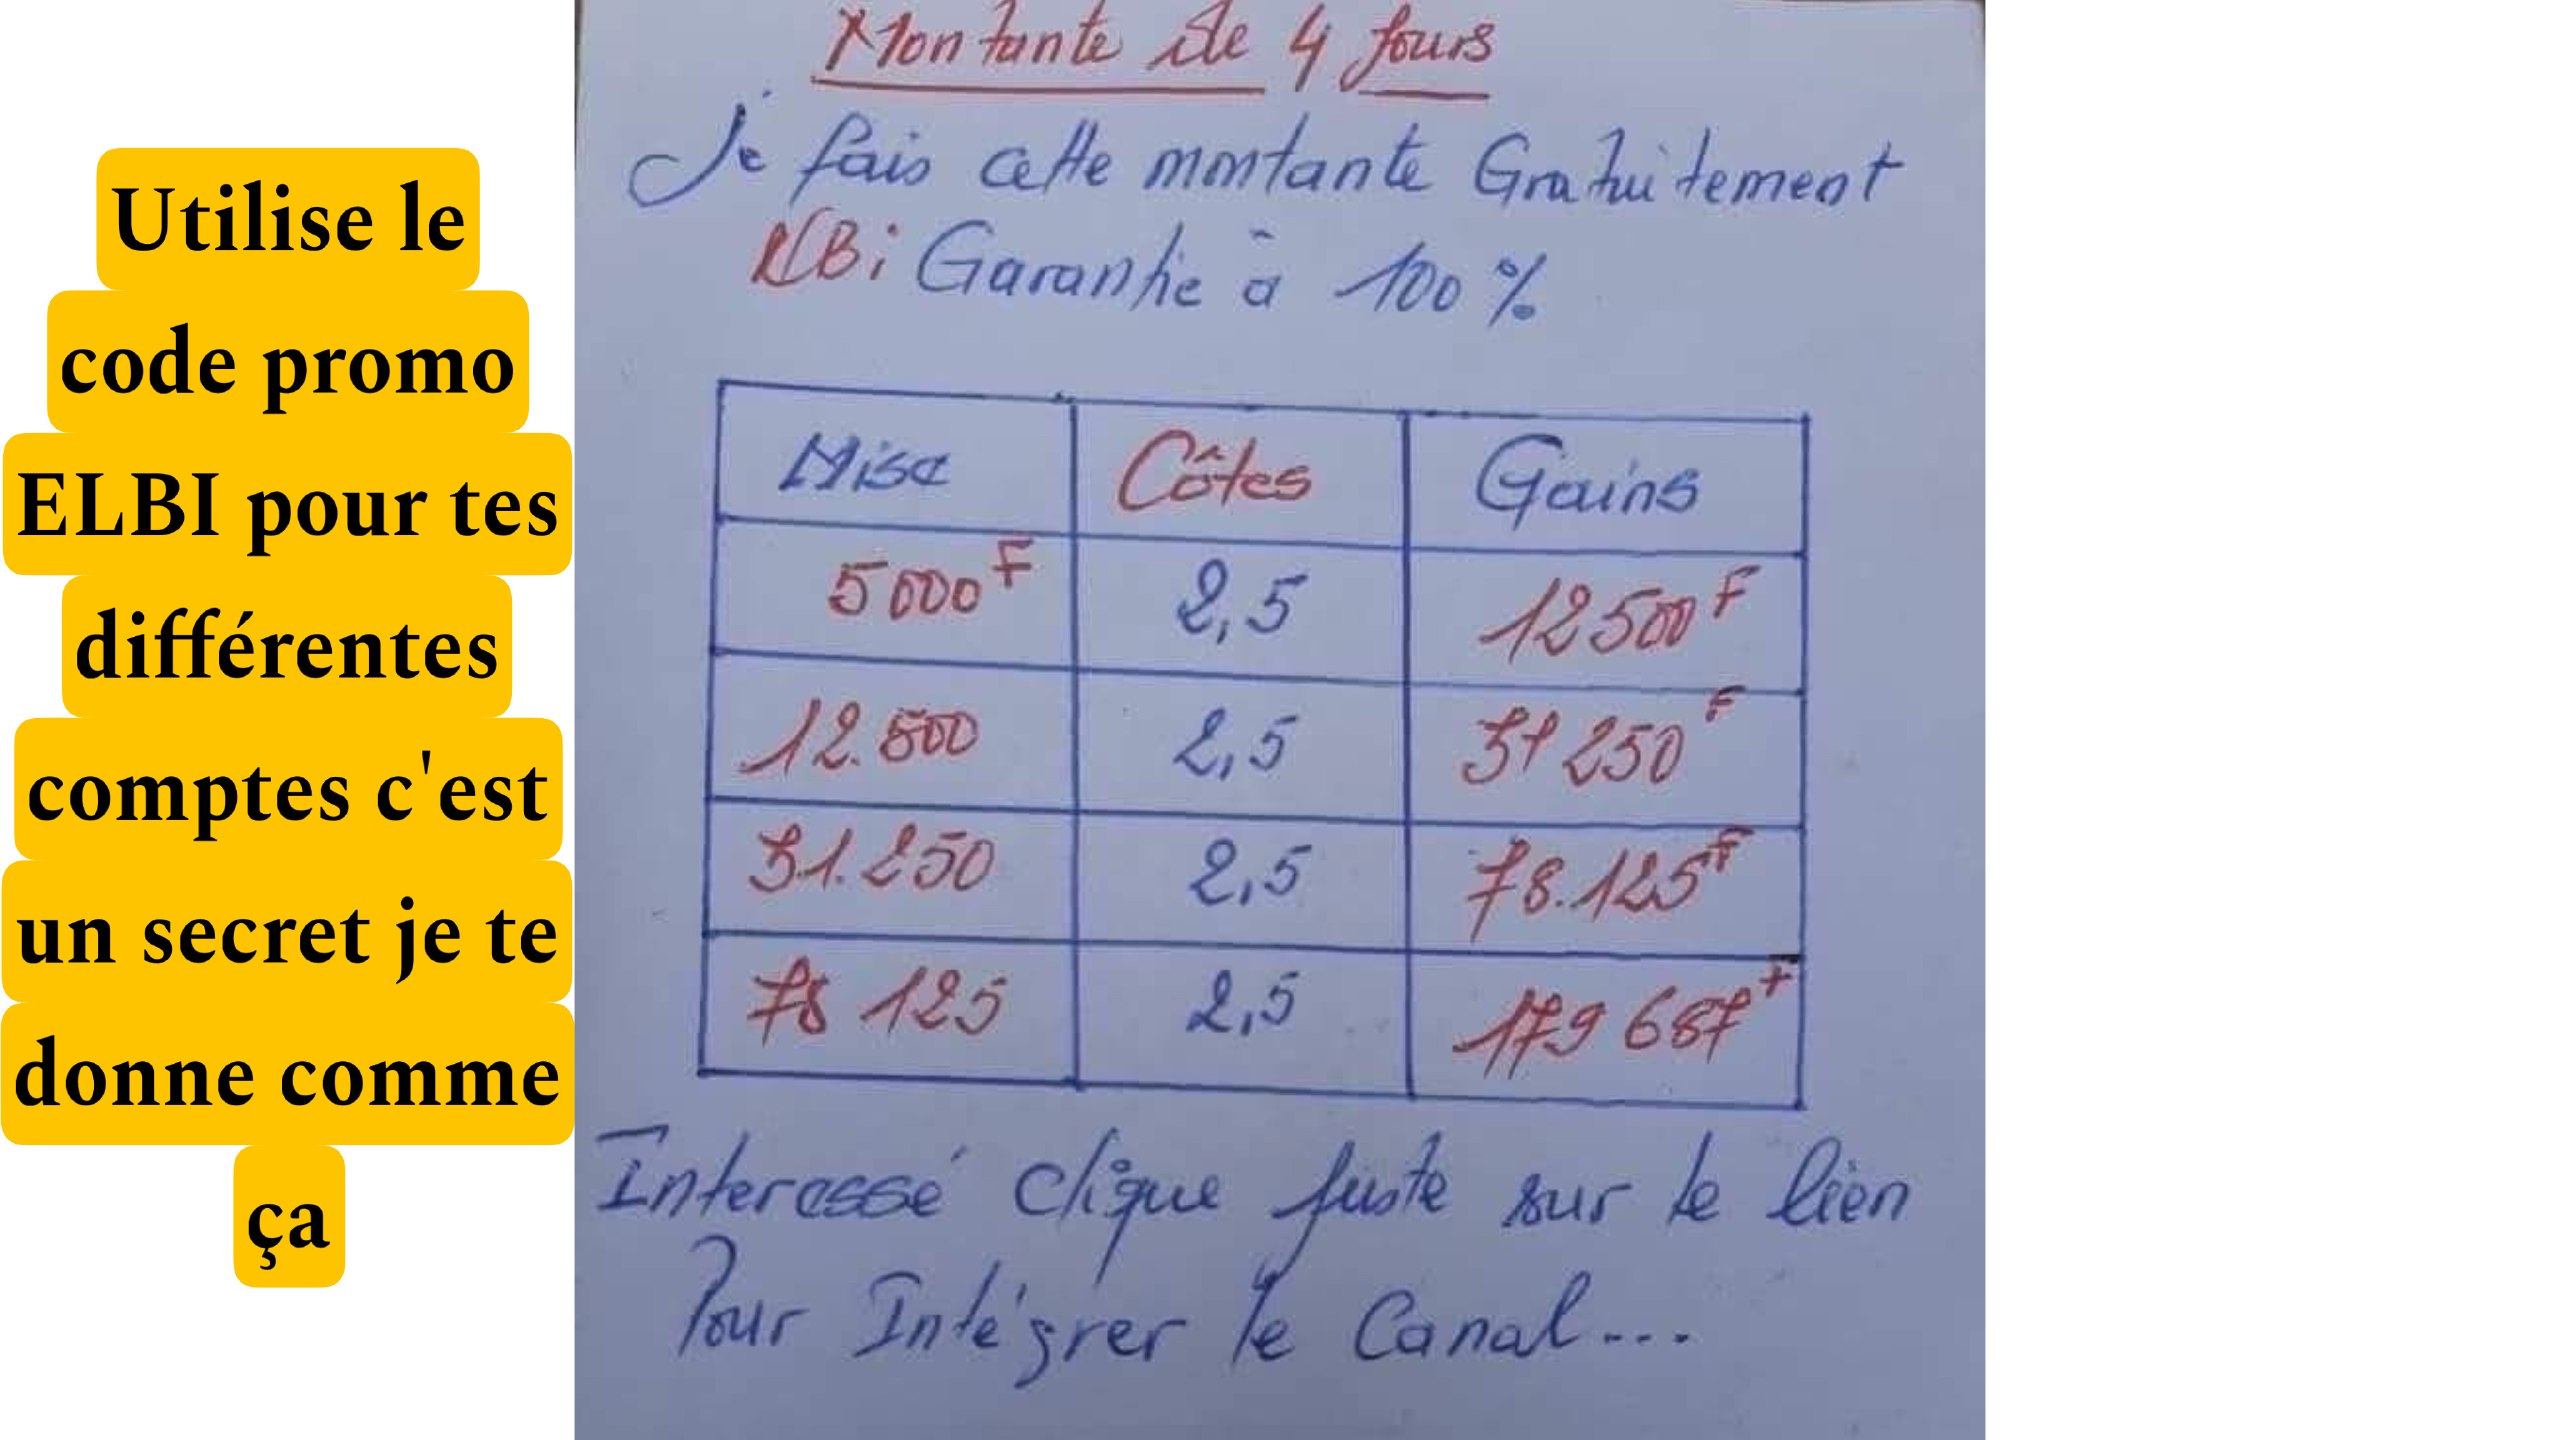 Utilise le
code promo
ELBI pour tes
différentes
comptes c'est
un secret je te
donne comme
ça
Montante de 4 Jours
Je fais cette montante Gratuitement
NB: Garantie à 100 %
Mise Côtes Gains
5000F 2,5 12500F
12.500 2,5 31250F
31.250 2,5 78.125F
78 125 2,5 179 687F
Interessé clique juste sur le lien
Pour Intégrer le Canal...